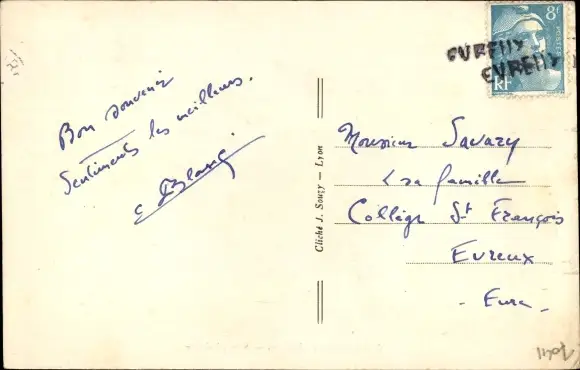 Bon souvenir
Sentiments les meilleurs.
Cliché J. Souzy — Lyon
8f
POSTES
RF
EVREUX
EVREUX
Monsieur Savary
& sa famille
Collège St François
Evreux
- Eure -